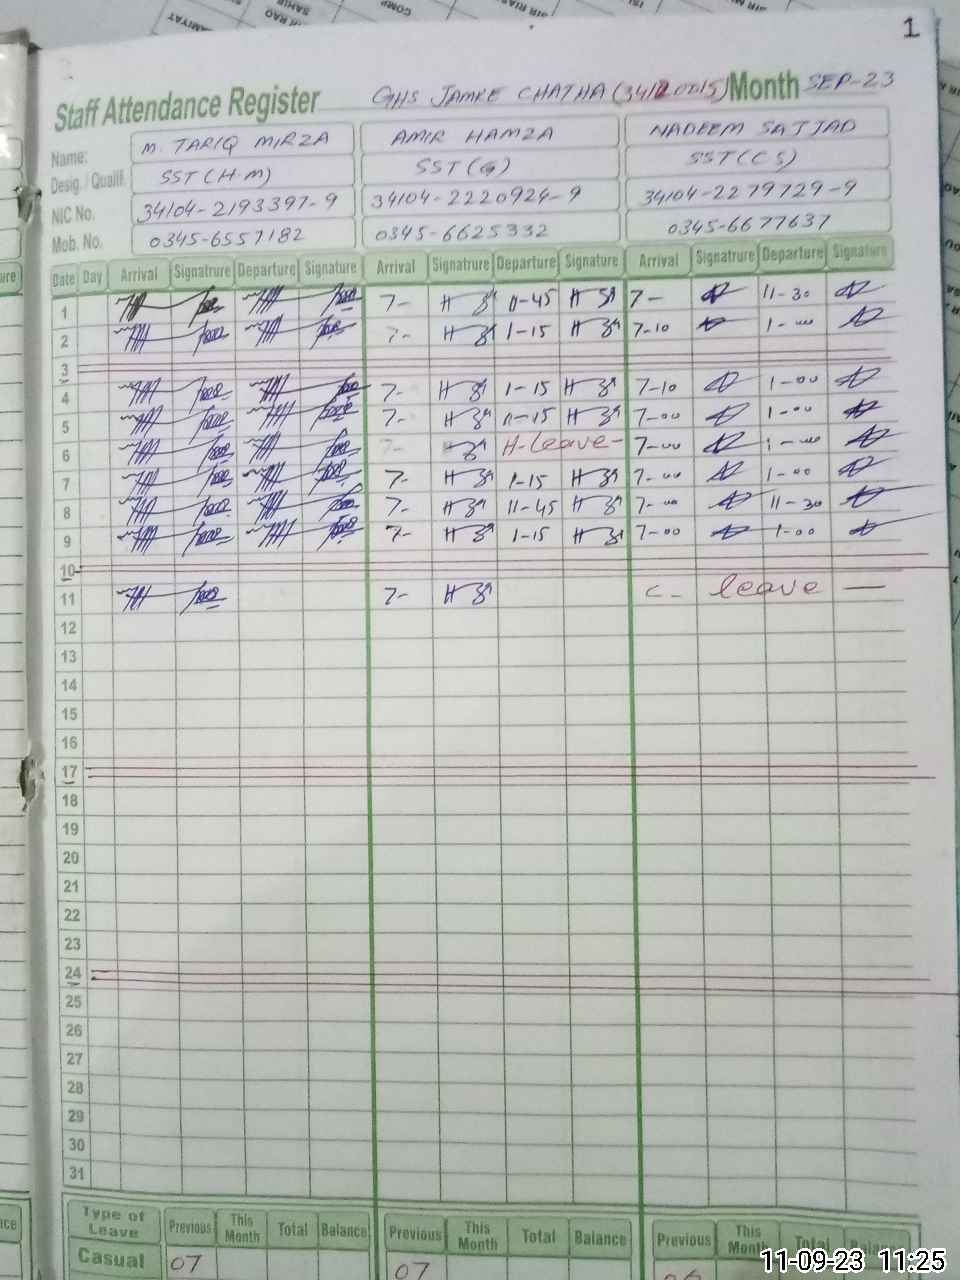 1
Staff Attendance Register GHS JAMKE CHATHA (34120015) Month SEP-23
Name: M. TARIQ MIRZA AMIR HAMZA NADEEM SAJJAD
Desig. / Qualif. SST (H.M) SST (G) SST (CS)
NIC No. 34104-2193397-9 34104-2220924-9 34104-2279729-9
Mob. No. 0345-6557182 0345-6625332 0345-6677637
Date Day Arrival Signatrure Departure Signature Arrival Signatrure Departure Signature Arrival Signatrure Departure Signature
1 7- 11-45 7- 11-30
2 7- 1-15 7-10 1-00
3
4 7- 1-15 7-10 1-00
5 7- 7-00 1-00
6 7- H-Leave- 7-00 1-00
7 7- 1-15 7-00 1-00
8 7- 11-45 7-00 11-30
9 7- 1-15 7-00 1-00
10
11 7- C- leave —
12
13
14
15
16
17
18
19
20
21
22
23
24
25
26
27
28
29
30
31
Type of Leave Previous This Month Total Balance Previous This Month Total Balance Previous This Month Total Balance
Casual 07 07 06
11-09-23 11:25